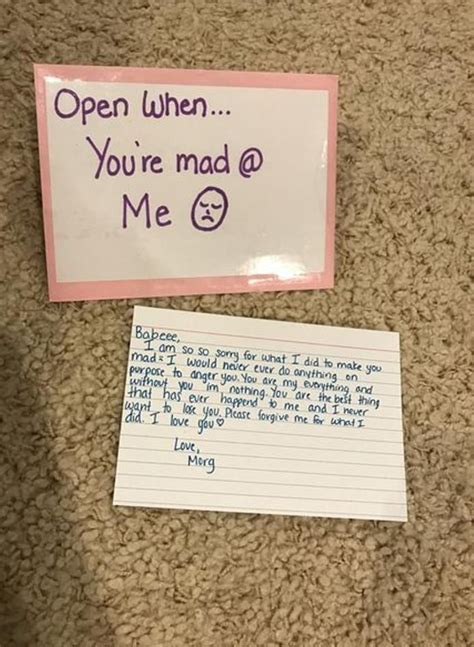 Open When...
You're mad @
Me
Babeee,
I am so so sorry for what I did to make you
mad. I would never ever do anything on
purpose to anger you. You are my everything and
without you im nothing. You are the best thing
that has ever happend to me and I never
want to lose you. Please forgive me for what I
did. I love you ♡
Love,
Morg